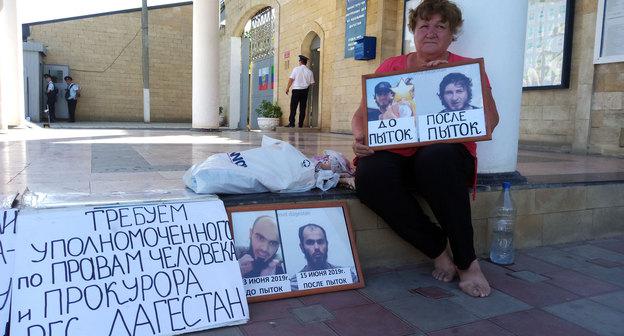 ДО ПЫТОК
ПОСЛЕ ПЫТОК
ТРЕБУЕМ
УПОЛНОМОЧЕННОГО
ПО ПРАВАМ ЧЕЛОВЕКА
И ПРОКУРОРА
РЕС. ДАГЕСТАН
3 ИЮНЯ 2019г.
ДО ПЫТОК
15 ИЮНЯ 2019г.
ПОСЛЕ ПЫТОК